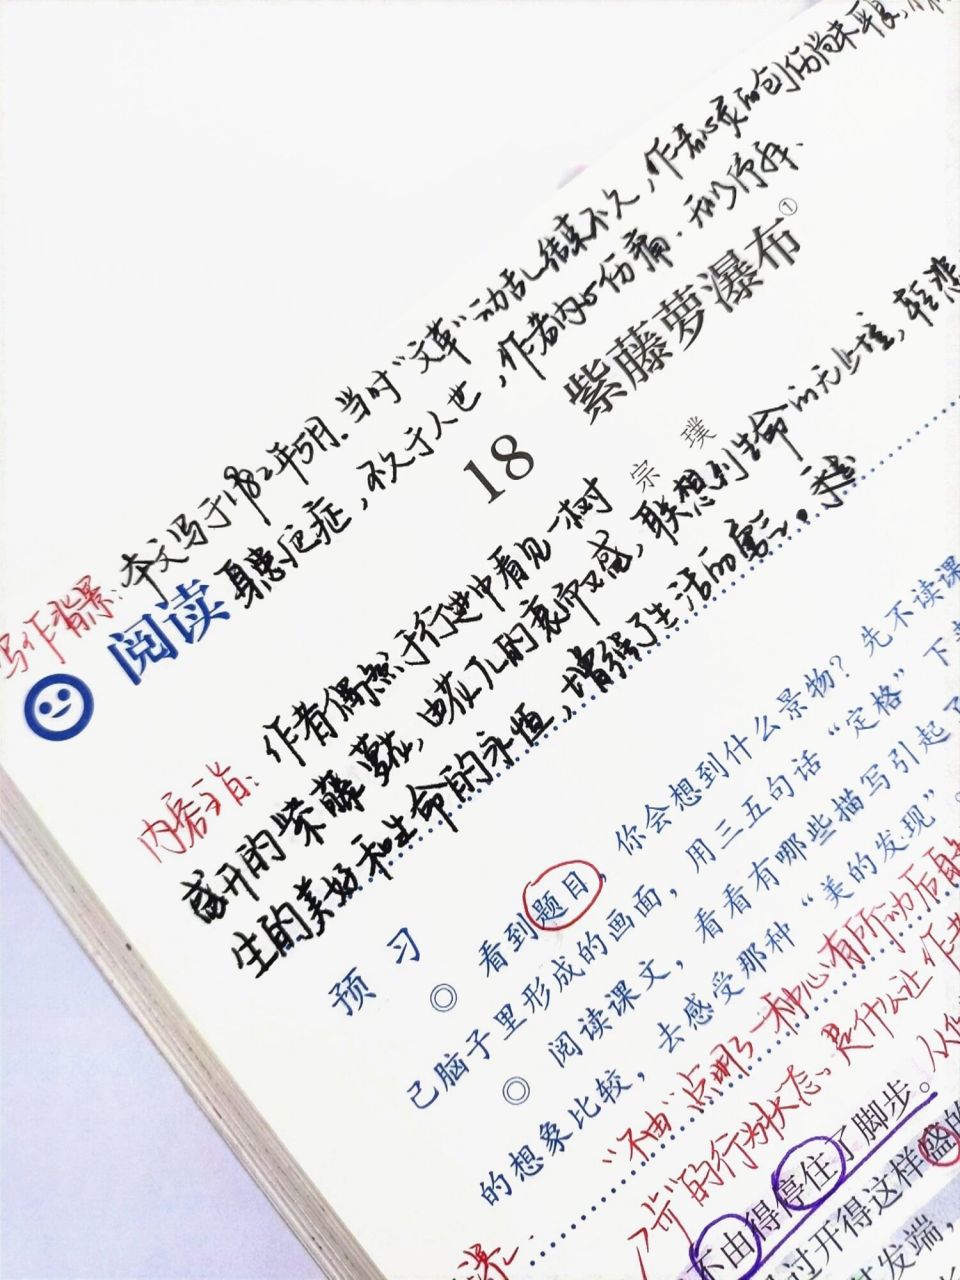 写作背景：本文写于1982年5月.当时“文革”动乱结束不久，作者心灵的创伤尚未平复，
身患绝症，不久于人世，作者内心伤痛、
阅读
18 紫藤萝瀑布①
宗璞
内容主旨：作者偶然于行进中看见一树
盛开的紫藤萝花，由花儿的衰而又盛，联想到生命的无止境，转悲
生的美好和生命的永恒，增强了生活的
预习
◎ 看到题目，你会想到什么景物？先不读课
己脑子里形成的画面，用三五句话“定格”下
◎ 阅读课文，看看有哪些描写引起了
的想象比较，去感受那种“美的发现”。
“不由”点明了一种心有所动后的
“的行为状态、是什么让作者
不由得停住了脚步。
过开得这样盛的
发端，